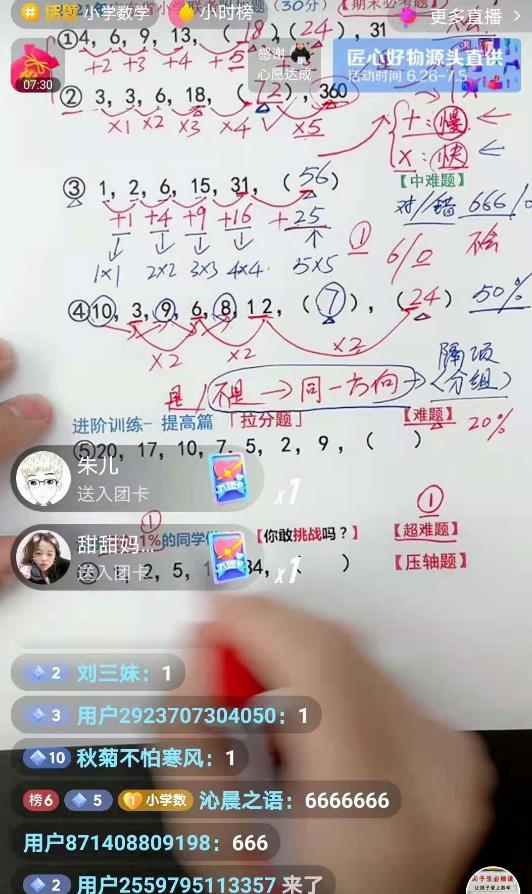 # 话题 小学数学
小时榜
更多直播 >
(30分)
【期末必考题】
①4, 6, 9, 13, (18)(24), 31
+2 +3 +4 +5
感谢
心愿达成
匠心好物源头直供
活动时间 6.26-7.5
07:30
② 3, 3, 6, 18, (72), 360
×1 ×2 ×3 ×4 ×5
+:慢
×:快
【中难题】
③ 1, 2, 6, 15, 31, (56)
+1 +4 +9 +16 +25
对/错 666/0
①
6/0
不会
1×1 2×2 3×3 4×4 5×5
④10, 3, 9, 6, 8, 12, (7), (24)
50%
×2 ×2 ×2
隔项
是/不是→同一方向→〈分组〉
【难题】
20%
进阶训练- 提高篇 「拉分题」
⑤20, 17, 10, 7, 5, 2, 9, ( )
朱儿
送入团卡
入团卡
x1
①
①
1%的同学
【你敢挑战吗？】
【超难题】
甜甜妈...
送入团卡
入团卡
x1
2, 5, 34, )
【压轴题】
2 刘三妹：1
3 用户2923707304050：1
10 秋菊不怕寒风：1
榜6 5 1 小学数 沁晨之语：6666666
用户871408809198：666
2 用户2559795113357 来了
尖子生必修课